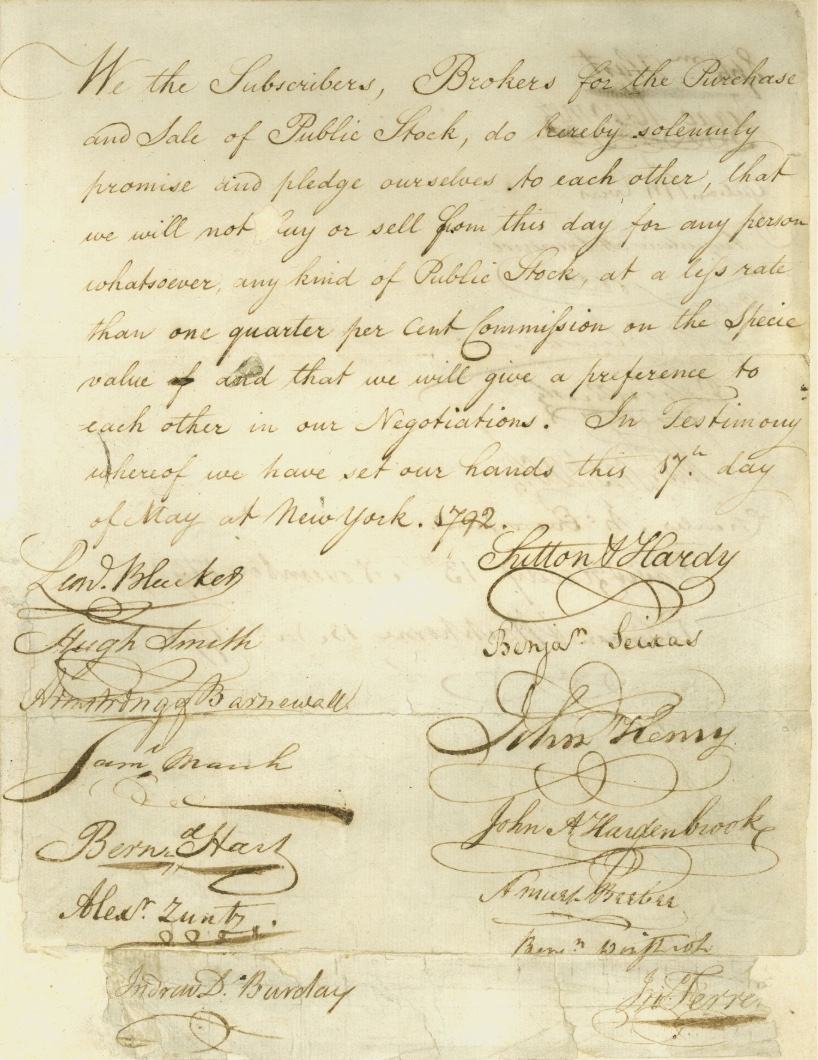 We the Subscribers, Brokers for the Purchase
and Sale of Public Stock, do hereby solemnly
promise and pledge ourselves to each other, that
we will not buy or sell from this day for any person
whatsoever, any kind of Public Stock, at a less rate
than one quarter per Cent Commission on the Specie
value of and that we will give a preference to
each other in our Negotiations. In Testimony
whereof we have set our hands this 17th. day
of May at New York. 1792.
Leond. Bleecker
Hugh Smith
Armstrong & Barnewall
Saml. March
Bernrd. Hart
Alexr. Zuntz.
Andrew D. Barclay
Sutton & Hardy
Benjamn. Seixas
John Henry
John A Hardenbrook
Amurt Beebee
Benjn. Winthrop
Jno. Ferrers